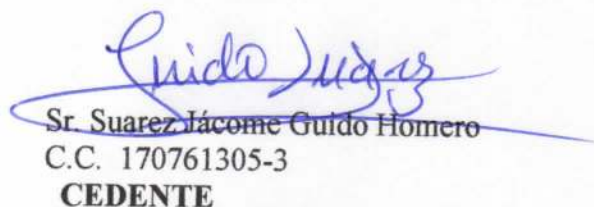 Guido Suárez
Sr. Suarez Jácome Guido Homero
C.C. 170761305-3
CEDENTE